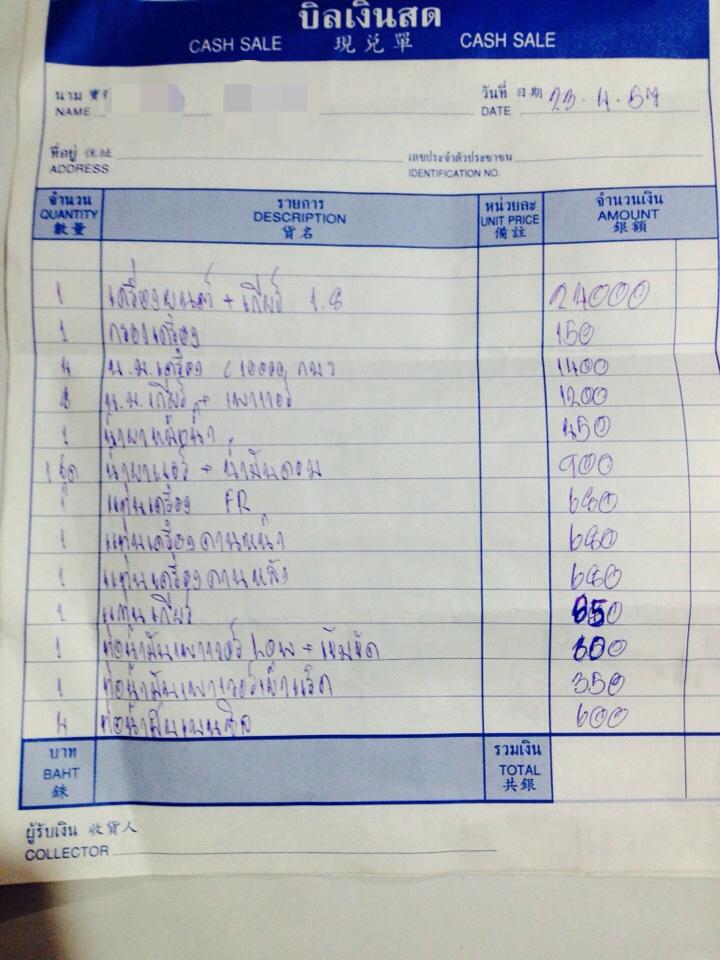 บิลเงินสด
CASH SALE 現兌單 CASH SALE
นาม 寶號 วันที่ 日期 23.4.57
NAME DATE
ที่อยู่ 住址 เลขประจำตัวประชาชน
ADDRESS IDENTIFICATION NO.
จำนวน รายการ หน่วยละ จำนวนเงิน
QUANTITY DESCRIPTION UNIT PRICE AMOUNT
數量 貨名 備註 銀額
1 เครื่องยนต์ + เกียร์ 1.8 24000
1 กรองเครื่อง 150
4 น.ม.เครื่อง (10000 1400
น.ม.เกียร์ + เพาเวอร์ 1200
1 450
1 ชุด 900
1 แท่นเครื่อง FR 680
1 แท่นเครื่องด้านหน้า 680
1 แท่นเครื่องด้านหลัง 680
1 แท่นเกียร์ 650
1 ท่อน้ำมันเพาเวอร์ Low + เข็มขัด
1 ท่อน้ำมันเพาเวอร์ 350
4 600
บาท รวมเงิน
BAHT TOTAL
銖 共銀
ผู้รับเงิน 收貨人
COLLECTOR